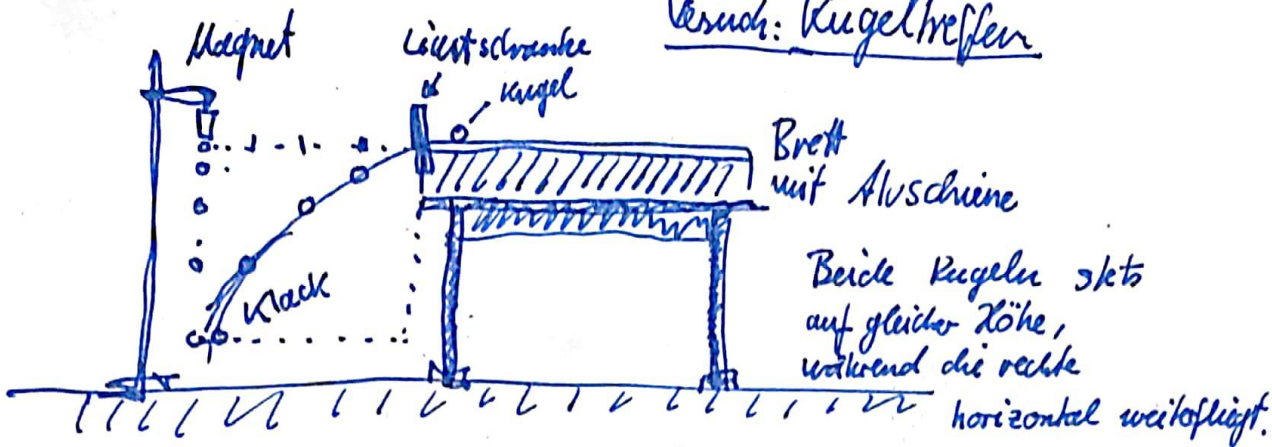 Versuch: Kugeltreffen
Magnet
Lichtschranke
Kugel
Brett
mit Aluschiene
Klack
Beide Kugeln stets
auf gleicher Höhe,
während die rechte
horizontal weiterfliegt.